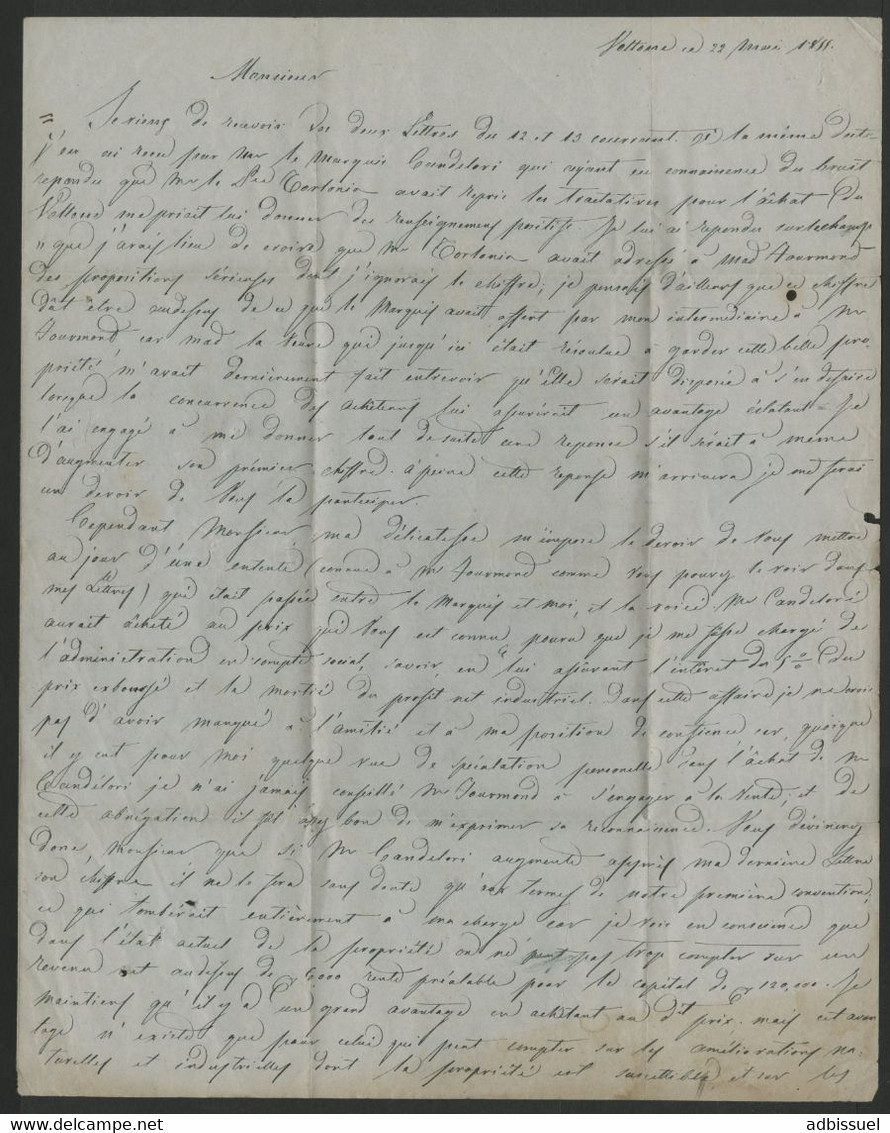 ce 22 Mai 1855.
Monsieur
Je viens de recevoir vos deux Lettres du 12 et 13 courrant. la même date
j'en ai reçu pour Mr le Marquis Candelori qui ayant eu connaissance du bruit
repondu que Mr le Pce Torlonia avait repris les traitatives pour l'âchat du
me priait lui donner des renseignements positifs. Je lui ai repondu surlechamp
"que j'avais lieu de croire que Mr Torlonia avait adressé à Mad Fourmond
des propositions sérieuses dont j'ignorais le chiffre; je pensais d'ailleurs que ce chiffre
dût être audessus de ce que le Marquis avait offert par mon intermédiaire à Mr
Fourmond car Mad la qui jusqu'ici était résolue à garder cette belle pro-
priété, m'avait dernièrement fait entrevoir qu'Elle serait disposée à s'en défaire
lorsque la concurrence des acheteurs lui assurerait un avantage éclatant = Je
l'ai engagé à me donner tout desuite une reponse s'il serait à même
d'augmenter son prémier chiffre. àpeine cette reponse m'arrivera je me ferai
un devoir de Vous la parteciper.
Cependant Monsieur ma délicatesse m'impose le devoir de Vous mettre
au jour d'une entente (connue à Mr Fourmond comme Vous pouvez le voir dans
mes Lettres) qui était passée entre le Marquis et moi, et la voici. Mr Candelori
aurait âcheté au prix qui Vous est connu pourvu que je me fusse chargé de
l'administration en compte social, savoir, en lui assurant l'intérêt du 5 % du
prix exboussé et la moitié du profit net industriel. Dans cette affaire je ne crois
pas d'avoir manqué à l'amitié et à ma position de confience car, quoique
il y eut pour moi quelque vue de spéculation personelle dans l'âchat de Mr
Candelori je n'ai jamais conseillé Mr Fourmond à s'engager à la Vente; et de
cette abnégation il fut assez bon de m'exprimer sa reconnaissance. Vous dévinerez
donc, Monsieur que si Mr Candelori augmente après ma dernière Lettre
son chiffre il ne le fera sans doute qu'aux termes de notre première convention,
ce qui tombérait entièrement à ma charge car je vois en conscience que
dans l'état actuel de la propriété on ne peut pas trop compter sur un
revenu net audessus de 6,000 rente préalable pour le capital de 120,000. Je
maintiens qu'il y a un grand avantage en achetant au dit prix. mais cet avan
tage n'existe que pour celui qui peut compter sur les améliorations na-
turelles et industrielles dont la propriété est suscettible et sur les
adbissuel